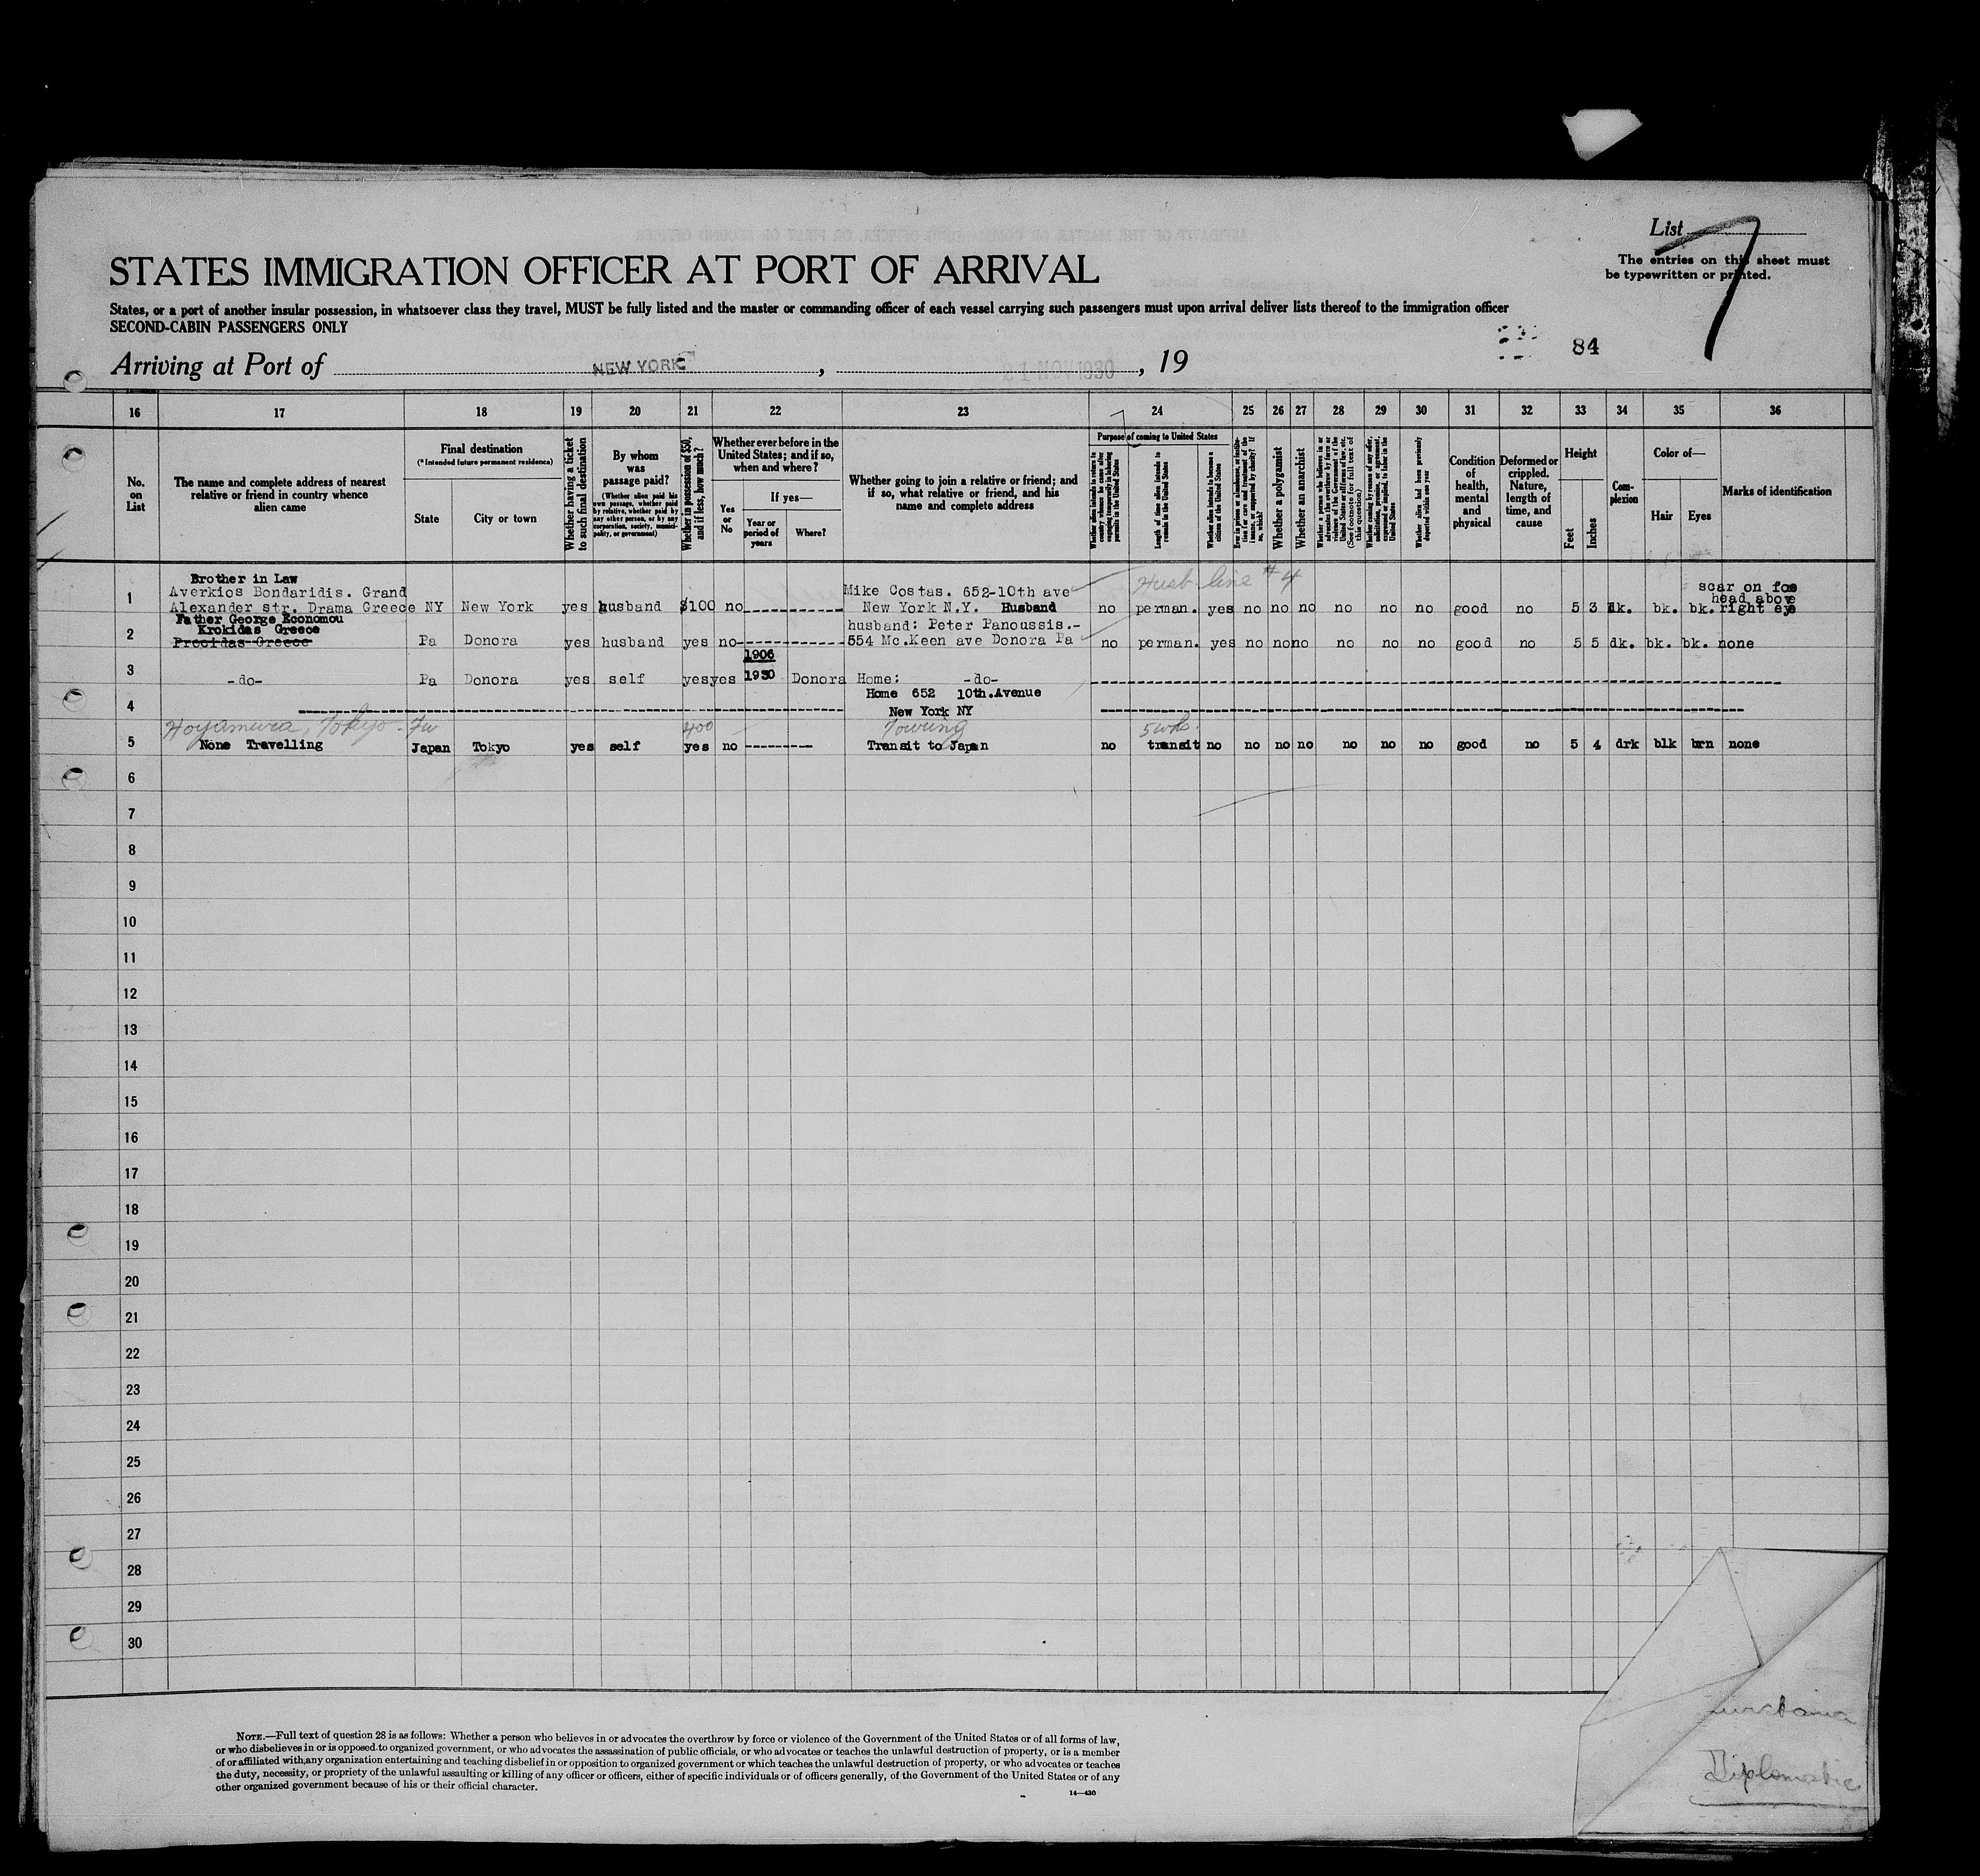 List 7
The entries on this sheet must
be typewritten or printed.
STATES IMMIGRATION OFFICER AT PORT OF ARRIVAL
States, or a port of another insular possession, in whatsoever class they travel, MUST be fully listed and the master or commanding officer of each vessel carrying such passengers must upon arrival deliver lists thereof to the immigration officer
SECOND-CABIN PASSENGERS ONLY
84
Arriving at Port of NEW YORK, 21 NOV 1930, 19
16 17 18 19 20 21 22 23 24 25 26 27 28 29 30 31 32 33 34 35 36
No.
on
List
The name and complete address of nearest
relative or friend in country whence
alien came
Final destination
(*Intended future permanent residence)
State
City or town
Whether having a ticket
to such final destination
By whom
was
passage paid?
(Whether alien paid his
own passage, whether paid
by relative, whether paid by
any other person, or by any
corporation, society, munici-
pality, or government)
Whether in possession of $50,
and if less, how much?
Whether ever before in the
United States; and if so,
when and where?
Yes
or
No
If yes—
Year or
period of
years
Where?
Whether going to join a relative or friend; and
if so, what relative or friend, and his
name and complete address
Purpose of coming to United States
Length of time alien intends to
remain in the United States
Whether alien intends to become a
citizen of the United States
Whether a polygamist
Whether an anarchist
Whether alien had been previously
deported within one year
Condition
of
health,
mental
and
physical
Deformed or
crippled.
Nature,
length of
time, and
cause
Height
Feet
Inches
Com-
plexion
Color of—
Hair
Eyes
Marks of identification
Husb line #4
Brother in Law
1 Averkios Bondaridis. Grand
Alexander str. Drama Greece NY New York yes husband $100 no---------- Mike Costas. 652-10th ave
New York N.Y. Husband no perman. yes no no no no no no good no 5 3 dk. bk. bk. scar on foe
head above
right eye
Father George Economou
2 Krokidas Greece
Procidas Greece Pa Donora yes husband yes no---------- husband: Peter Panoussis.-
554 Mc.Keen ave Donora Pa no perman. yes no no no no no no good no 5 5 dk. bk. bk. none
3 -do- Pa Donora yes self yes yes 1906
1930 Donora Home: -do-
4 Home 652 10th.Avenue
New York NY
Tokyo 400 Touring 5 wks.
5 None Travelling Japan Tokyo yes self yes no --------- Transit to Japan no transit no no no no no no no good no 5 4 drk blk brn none
6
7
8
9
10
11
12
13
14
15
16
17
18
19
20
21
22
23
24
25
26
27
28
29
30
NOTE.—Full text of question 28 is as follows: Whether a person who believes in or advocates the overthrow by force or violence of the Government of the United States or of all forms of law,
or who disbelieves in or is opposed to organized government, or who advocates the assassination of public officials, or who advocates or teaches the unlawful destruction of property, or is a member
of or affiliated with any organization entertaining and teaching disbelief in or opposition to organized government or which teaches the unlawful destruction of property, or who advocates or teaches
the duty, necessity, or propriety of the unlawful assaulting or killing of any officer or officers, either of specific individuals or of officers generally, of the Government of the United States or of any
other organized government because of his or their official character.
14—430
Diplomatic